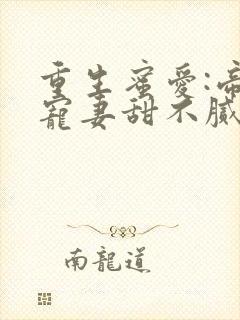 重生蜜愛:帝
寵妻甜不膩
南龍道